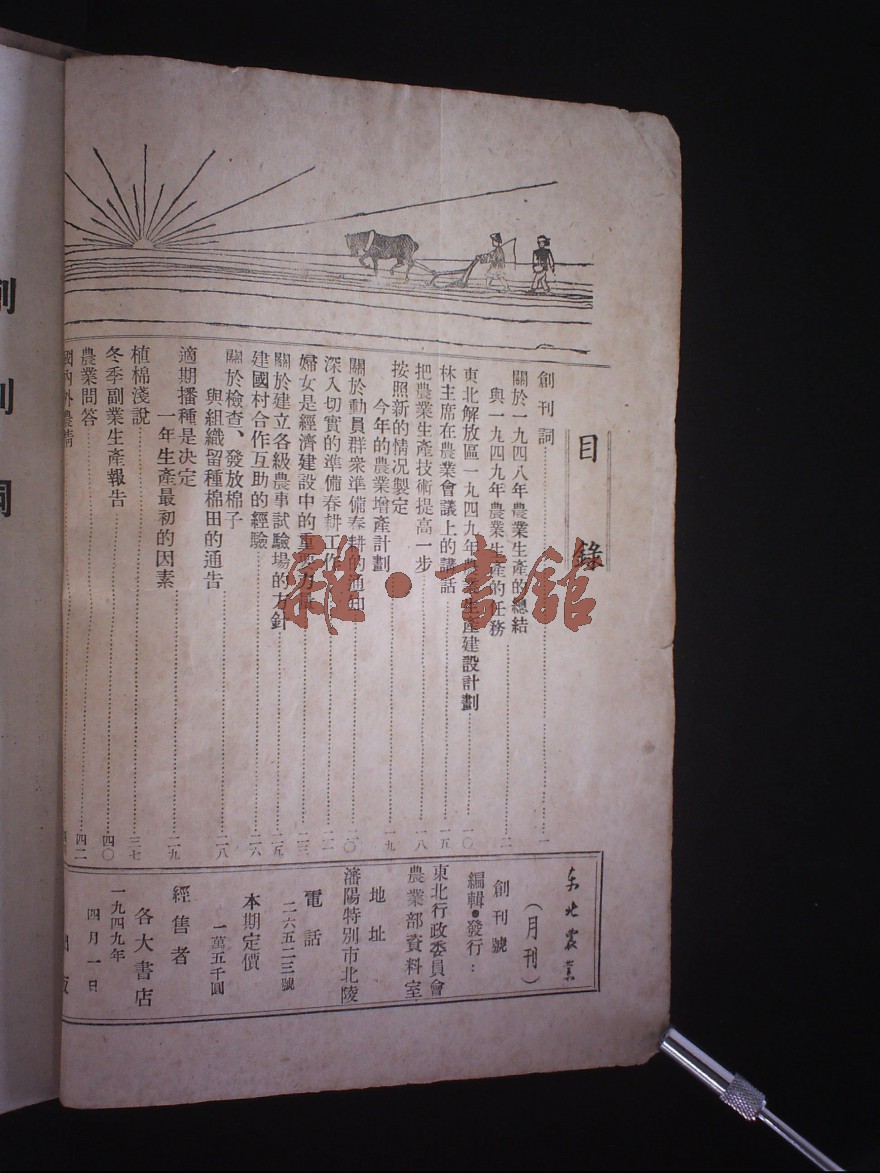 目錄
創刊詞……一
關於一九四八年農業生產的總結
與一九四九年農業生產的任務……二
東北解放區一九四九年農業生產建設計劃……一〇
林主席在農業會議上的講話……一五
把農業生產技術提高一步……一八
按照新的情况製定
今年的農業增產計劃……一九
關於動員群衆準備春耕的通知……二〇
深入切實的準備春耕工作……二一
婦女是經濟建設中的重要力量……二三
關於建立各級農事試驗場的方針……二五
建國村合作互助的經驗……二六
關於檢查、發放棉子
與組織留種棉田的通告……二八
適期播種是決定
一年生產最初的因素……二九
植棉淺說……三七
冬季副業生產報告……四〇
農業問答……四二
國內外農情
东北農業
（月刊）
創刊號
編輯●發行：
東北行政委員會
農業部資料室
地址
瀋陽特別市北陵
電話
二六五二三號
本期定價
一萬五千圓
經售者
各大書店
一九四九年
四月一日
出版
雜·書館
創刊詞